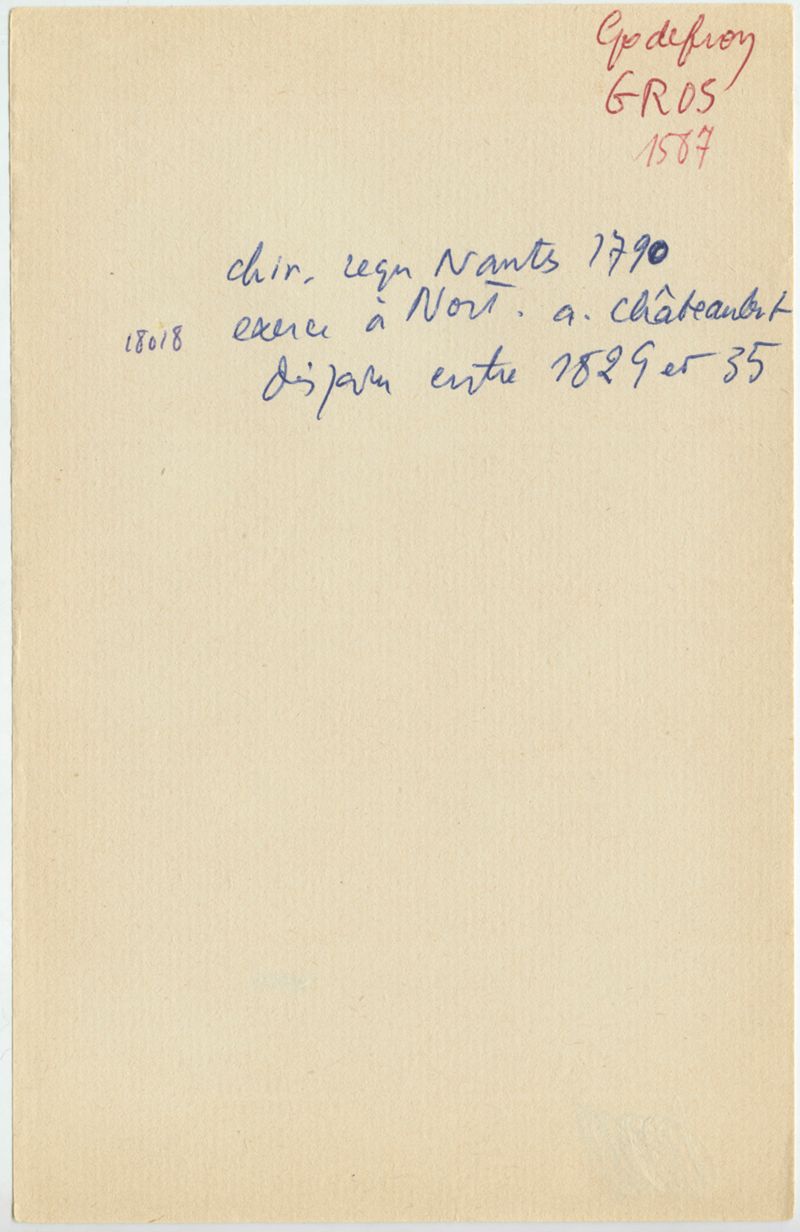 Godefroy
GROS
1587
chir. reçu Nantes 1790
exerce à Nort. a. châteaubt
18018
disparu entre 1829 et 35